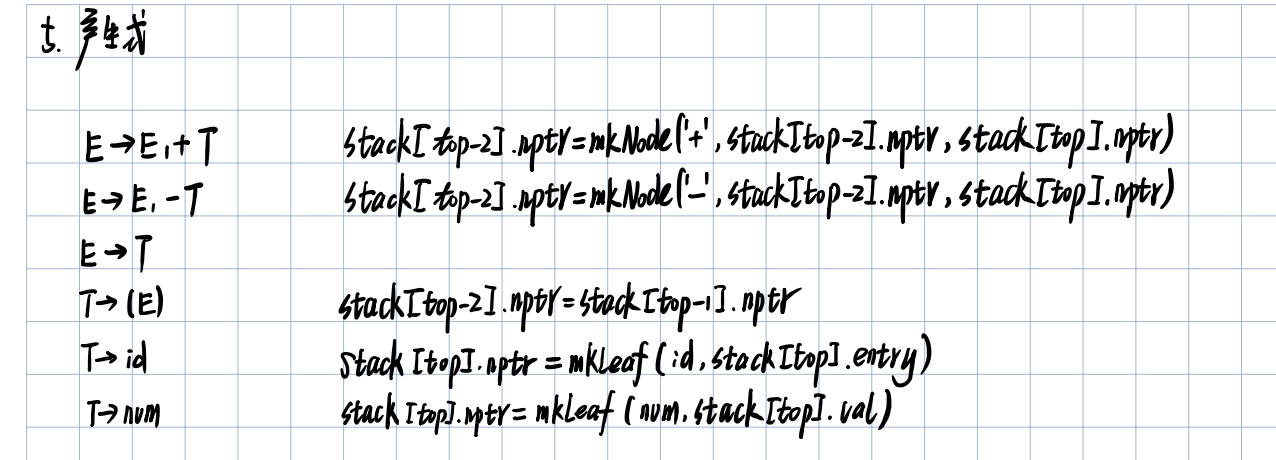 t. 产生式
E → E₁ + T stack[top-2].nptr = mkNode('+', stack[top-2].nptr, stack[top].nptr)
E → E₁ - T stack[top-2].nptr = mkNode('-', stack[top-2].nptr, stack[top].nptr)
E → T
T → (E) stack[top-2].nptr = stack[top-1].nptr
T → id stack[top].nptr = mkLeaf(id, stack[top].entry)
T → num stack[top].nptr = mkLeaf(num, stack[top].val)